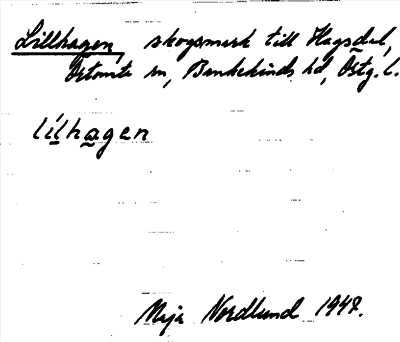 Lillhagen, skogsmark till Hagsdal,
Örtomta sn, Bankekinds hd, Östg. l.
lílhagen
Maja Nordlund 1947.